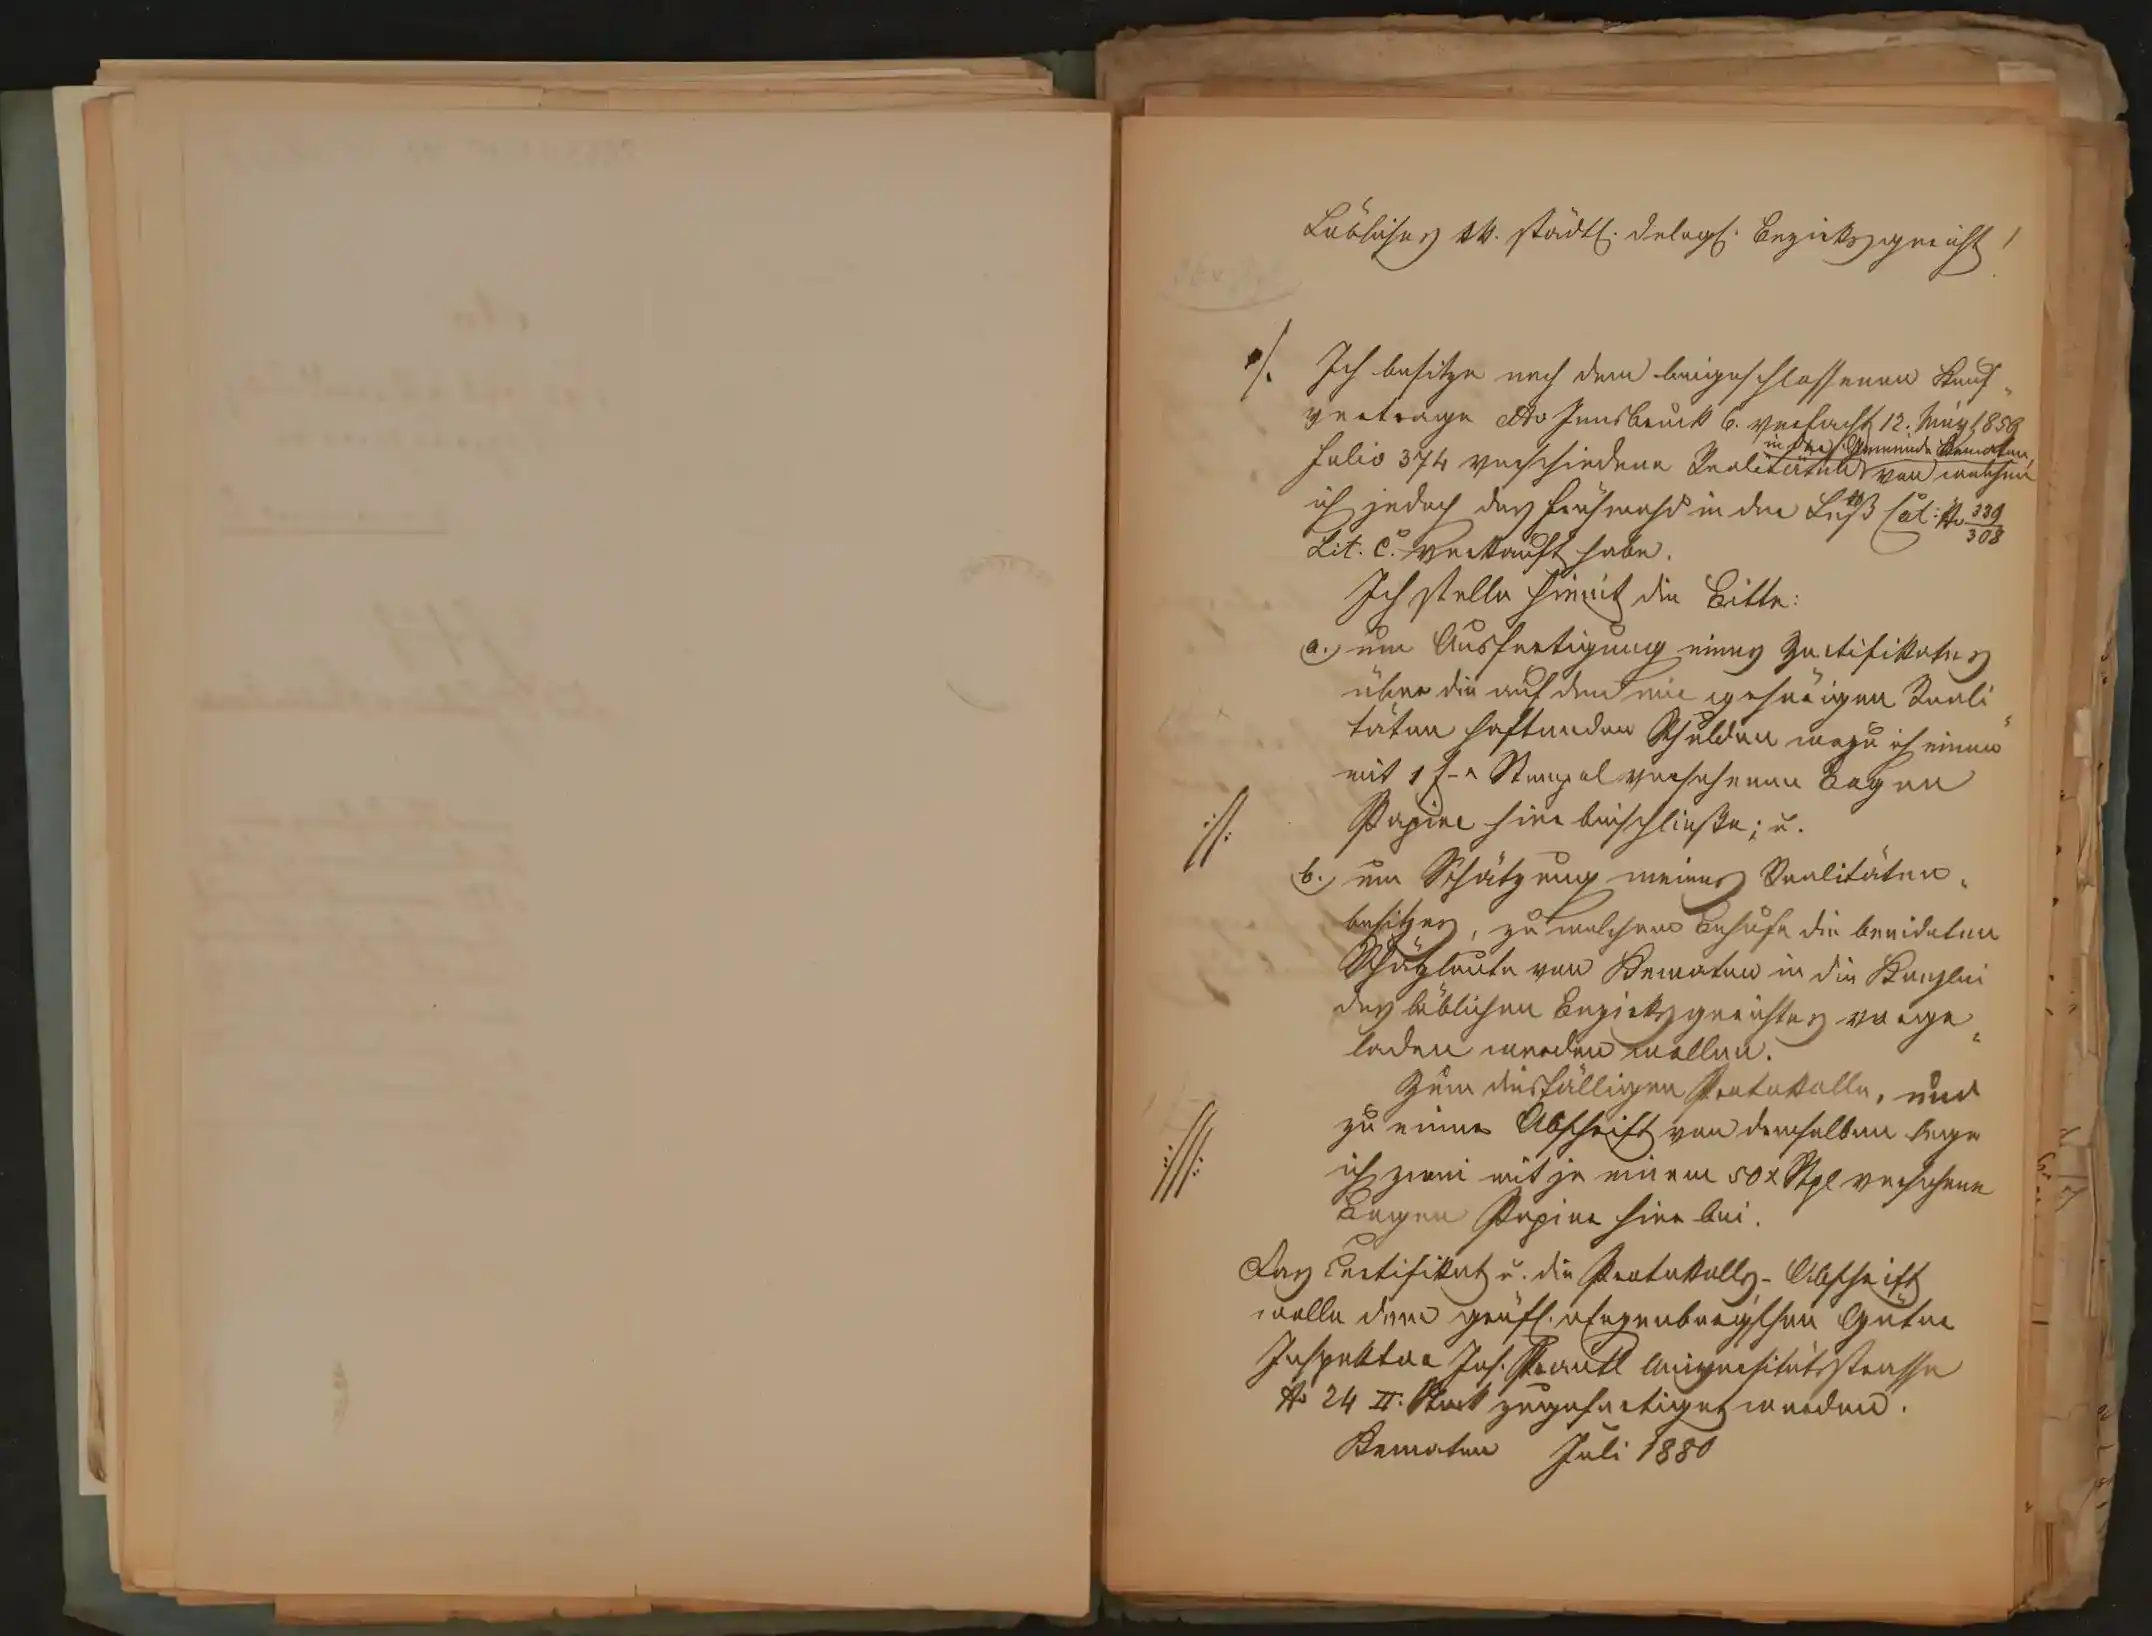 Löbliches kk. städtl. delegl. Bezirksgericht!
·/. Ich besitze nach dem beigeschlossenen Kauf-
vertrage dto Innsbruck 6. verfacht 12. May 1856
in der Gemeinde Kematen,
Folio 374 verschiedene Realitäten von welchen
ich jedoch das Frühmahd in der Cat: No 339/308
Lit. C. verkauft habe.
Ich stelle hiemit die Bitte:
a.) um Ausfertigung eines Zertifikates
über die auf den mir gehörigen Reali-
täten haftenden Schulden wozu ich einen
mit 1 f - Stempel versehenen Bogen
·//: Papier hier beischließe; u.
b.) um Schätzung meines Realitäten-
besitzes, zu welchem Behufe die beeideten
Schätzleute von Kematen in die Kanzlei
des löblichen Bezirksgerichtes vorge-
laden werden wollen.
Zum diesfälligen Protokolle, und
zu einer Abschrift von demselben lege
:///: ich zwei mit je einem 50 x Stpl versehene
Bogen Papier hier bei.
Das Certifikat u. die Protokolls-Abschrift
wolle dem gräfl. Güter
Inspektor Jos. Prantl Universitätsstrasse
No 24 II. Stock zugefertiget werden.
Kematen Juli 1880